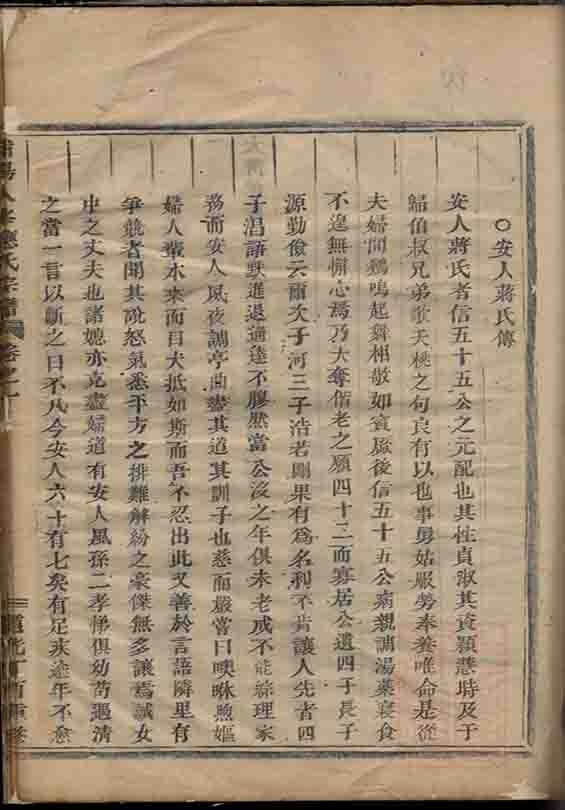 ○安人蔣氏傳
安人蔣氏者信五十五公之元配也其性貞淑其資穎慧時及于
歸伯叔兄弟歌夭桃之句良有以也事舅姑服勞奉養唯命是從
夫婦間鷄鳴起舞相敬如賓厥後信五十五公病親調湯藥寢食
不遑無懈心焉乃大奪偕老之願四十三而寡居公遺四子長子
源勤儉云爾次子河三子浩若剛果有為名利不肯讓人先者四
子滔語默進退通達不膠然當公沒之年俱未老成不能綜理家
務而安人夙夜調停曲盡其道其訓子也慈而嚴嘗曰噢咻煦嫗
婦人輩水來面目大抵如斯而吾不忍出此又善於言語隣里有
爭競者聞其說怒氣悉平方之排難解紛之豪傑無多讓焉誠女
中之丈夫也諸媳亦克盡婦道有安人風孫二孝悌俱幼苟遇清
之當一言以斷之曰不凡今安人六十有七矣有足疾逾年不愈
氏宗譜 卷之
道光丁酉重修